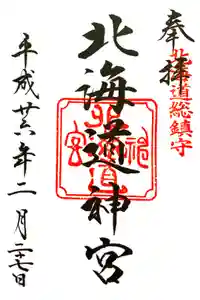 奉拝
北海道総鎮守
北海道神宮
平成廿六年二月二十七日